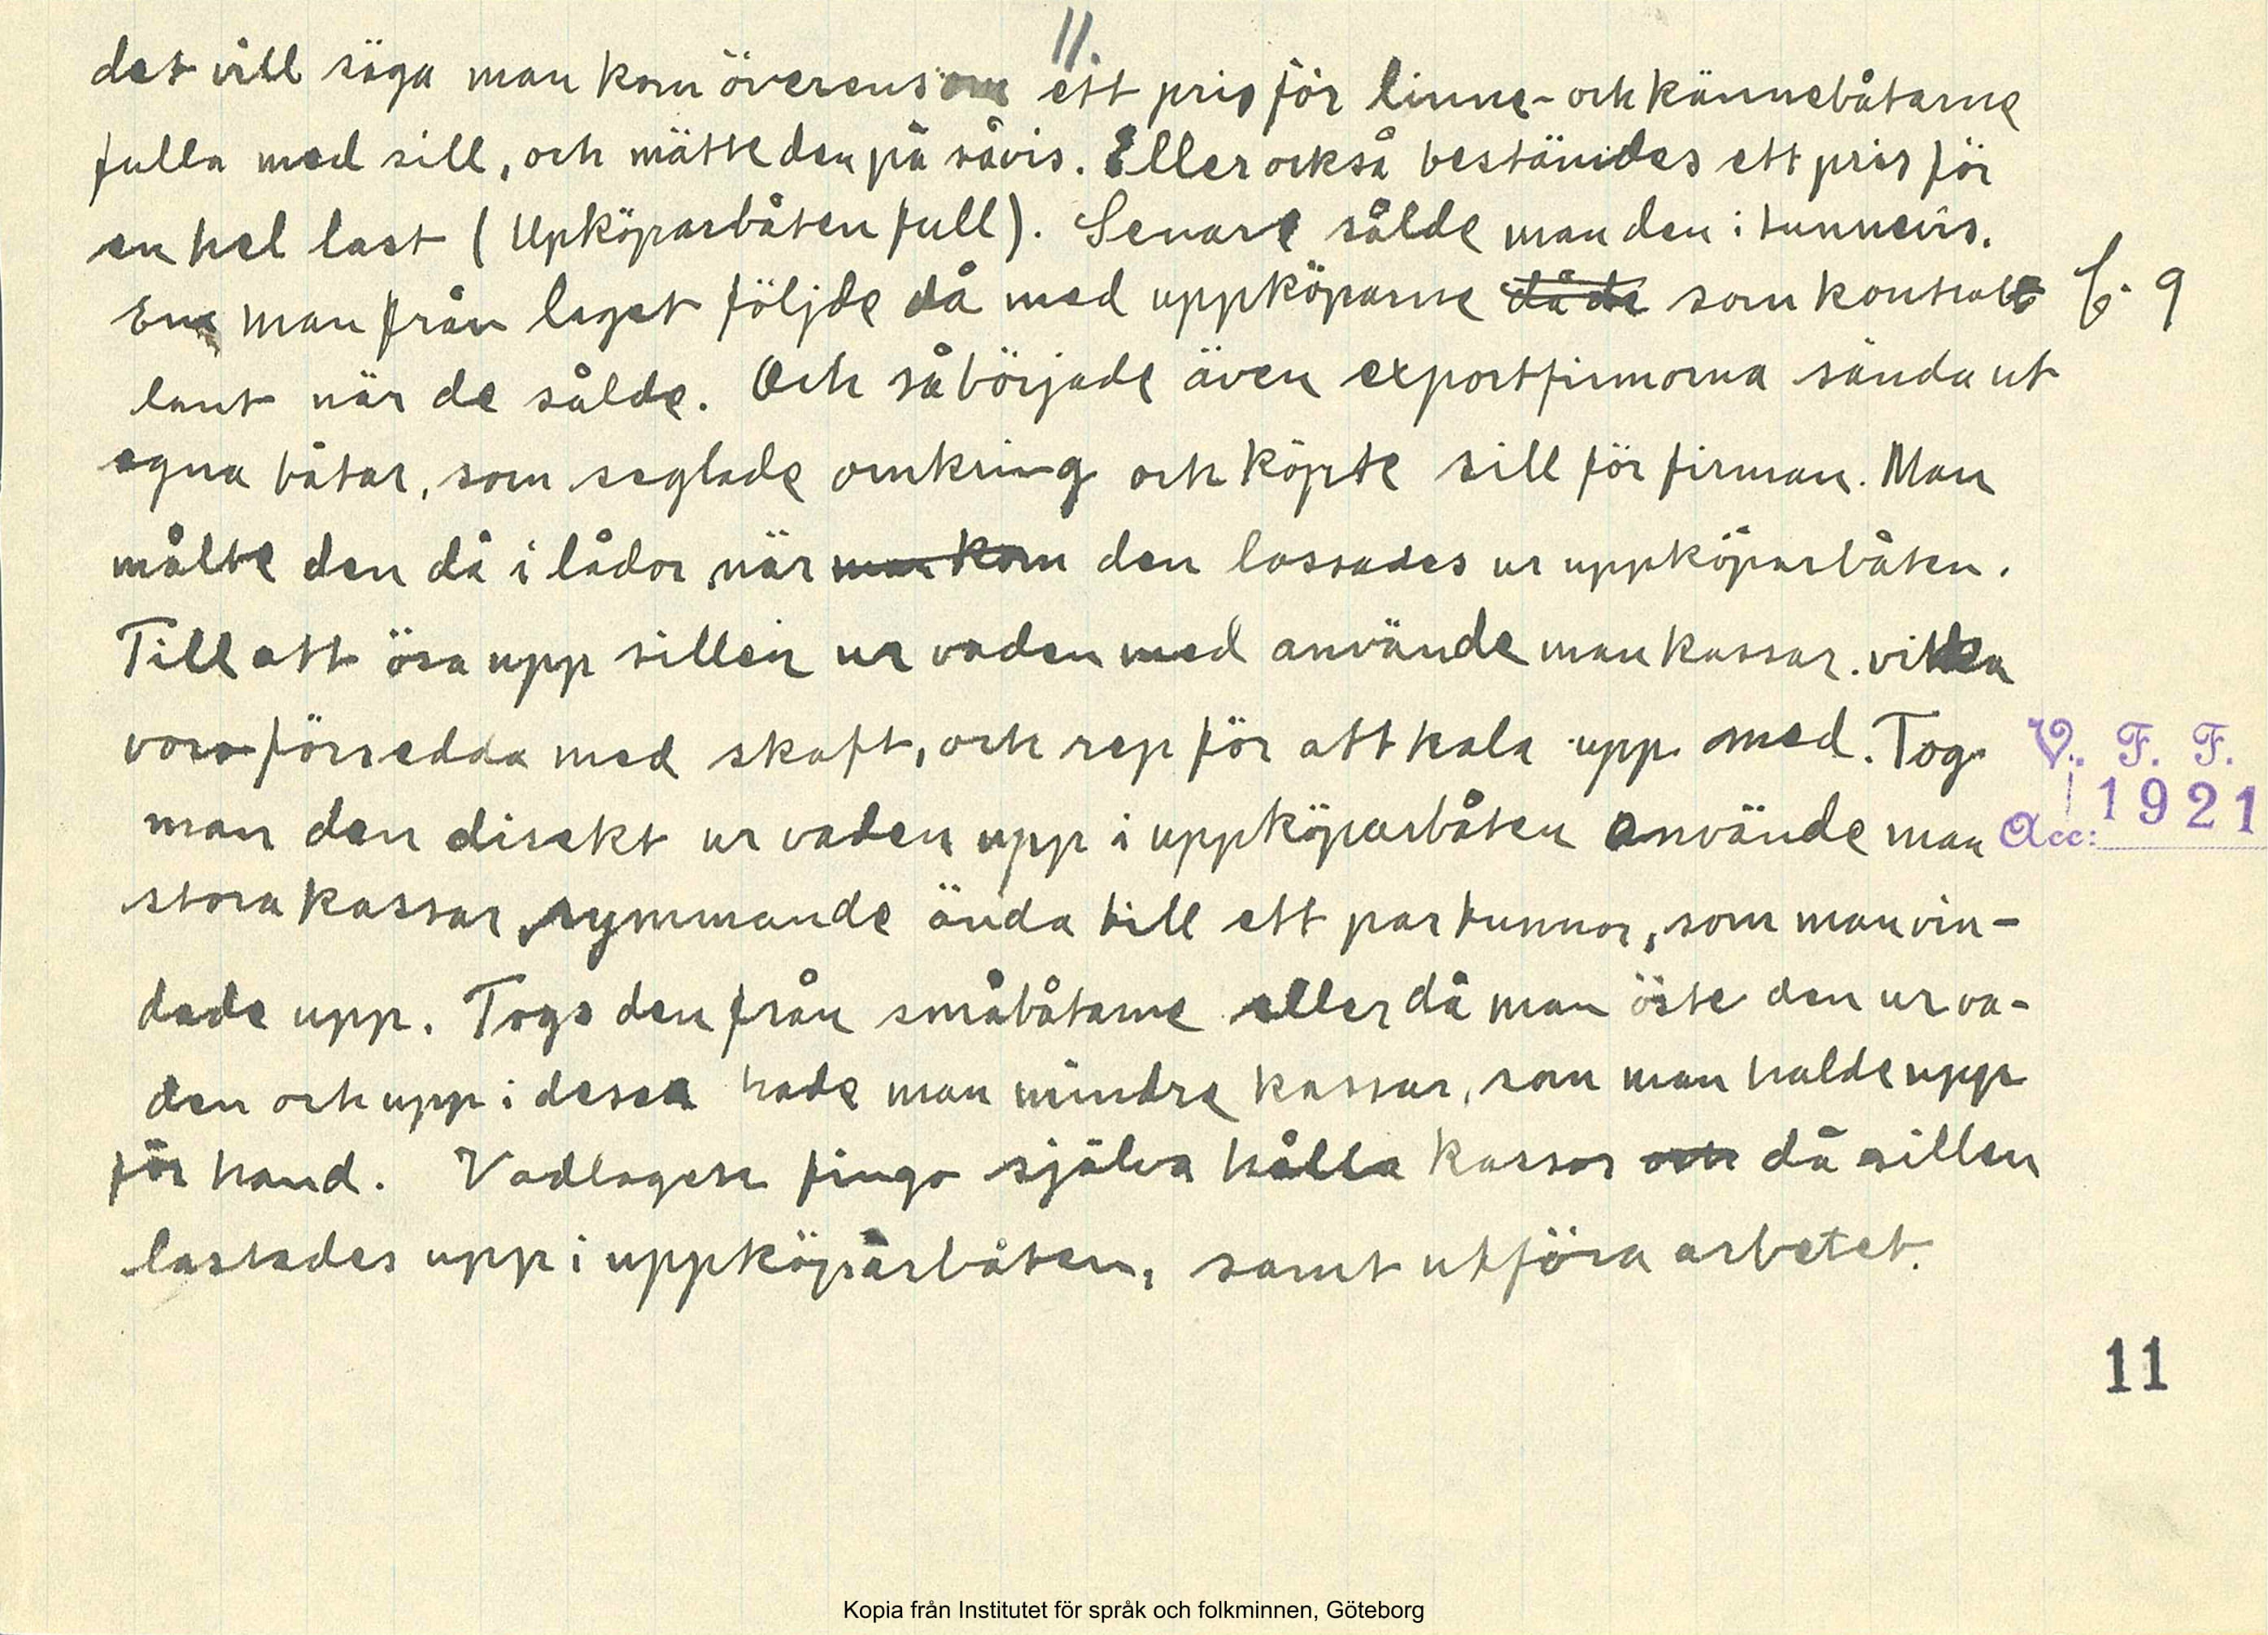 11.
det vill säga man kom överens om ett pris för linne- och kännebåtarne
fulla med sill, och mätte den på såvis. Eller också bestämdes ett pris för
en hel last (Upköparbåten full). Senare sålde man den i tunnevis.
En man från laget följde då med uppköparne då de som kontrol-
lant när de sålde. Och så började även exportfirmorna sända ut
egna båtar, som seglade omkring och köpte sill för firman. Man
mätte den då i lådor när man kom den lossades ur uppköparbåten.
Till att ösa upp sillen ur vaden med använde man kassar. vilka
voro försedda med skaft, och rep för att hala upp med. Tog
man den direkt ur vaden upp i uppköparbåten använde man
stora kassar, rymmande ända till ett par tunnor, som man vin-
dade upp. Togs den från småbåtarne eller då man öste den ur va-
den och upp i dessa hade man mindre kassar, som man halde upp
för hand. Vadlagen fingo själva hålla kassar och då sillen
lastades upp i uppköparbåten, samt utföra arbetet.
9
V. F. F.
Acc: 1921
11
Kopia från Institutet för språk och folkminnen, Göteborg